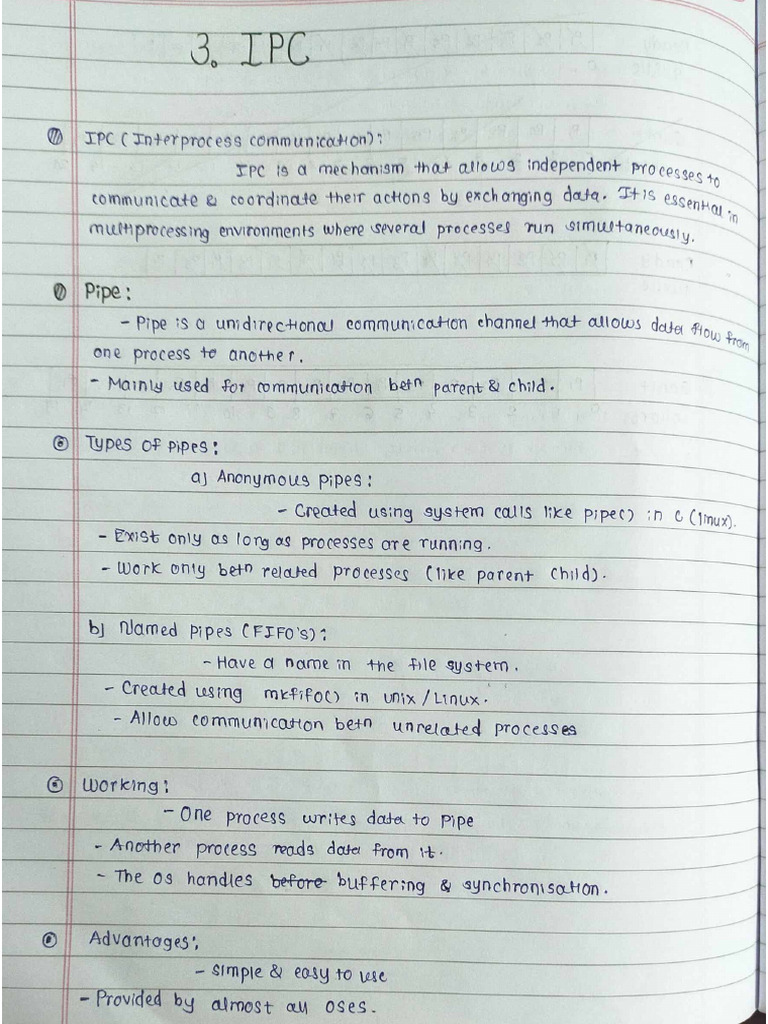 3. IPC
IPC (Interprocess communication):
IPC is a mechanism that allows independent processes to
communicate & coordinate their actions by exchanging data. It is essential in
multiprocessing environments where several processes run simultaneously.
Pipe:
- Pipe is a unidirectional communication channel that allows data flow from
one process to another.
- Mainly used for communication betn parent & child.
Types of pipes:
a) Anonymous pipes:
- Created using system calls like pipe() in C (linux).
- Exist only as long as processes are running.
- Work only betn related processes (like parent child).
b) Named pipes (FIFO's):
- Have a name in the file system.
- Created using mkfifo() in unix / Linux.
- Allow communication betn unrelated processes
Working:
- One process writes data to pipe
- Another process reads data from it.
- The os handles before buffering & synchronisation.
Advantages:
- simple & easy to use
- Provided by almost all oses.